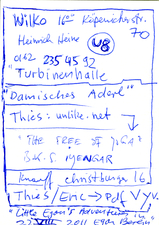 Wilko 16 Köpenickerstr. 70
Heinrich Heine U8
0162 235 45 32
"Turbinenhalle
"Damisches Aderl"
Thies: unlike.net
"THE TREE OF YOGA"
B.K.S IYENGAR
Knauf christburger 16
Thies / Enc → Pdf V
"Little Egon's Adventure in
22 VIII 2011 Egon Berlin